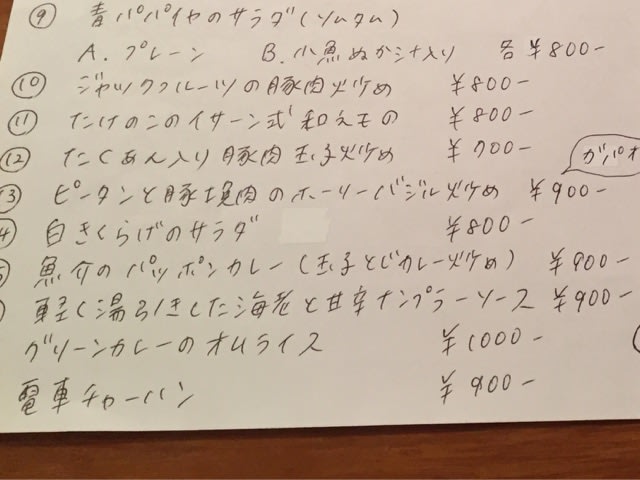 ⑨ 青パパイヤのサラダ(ソムタム)
A. プレーン B. 小魚ぬか汁入り 各¥800-
⑩ ジャックフルーツの豚肉炒め ¥800-
⑪ たけのこのイサーン式和えもの ¥800-
⑫ たくあん入り豚肉玉子炒め ¥700-
ガパオ
13 ピータンと豚塊肉のホーリーバジル炒め ¥900-
4 白きくらげのサラダ ¥800-
魚介のパッポンカレー(玉子とじカレー炒め) ¥900-
軽く湯引きした海老と甘辛ナンプラーソース ¥900-
グリーンカレーのオムライス ¥1000-
電車チャーハン ¥900-